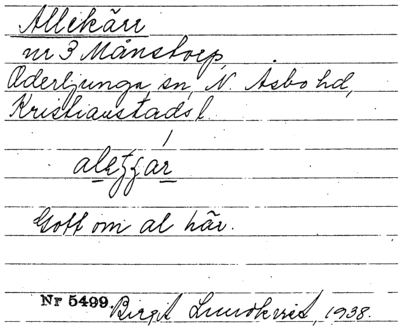 Allekärr
nr 3 Månstorp,
Oderljunga sn, N. Åsbo hd,
Kristianstads l
Gott om al här.
Nr 5499. Birgit Lundkvist, 1938.